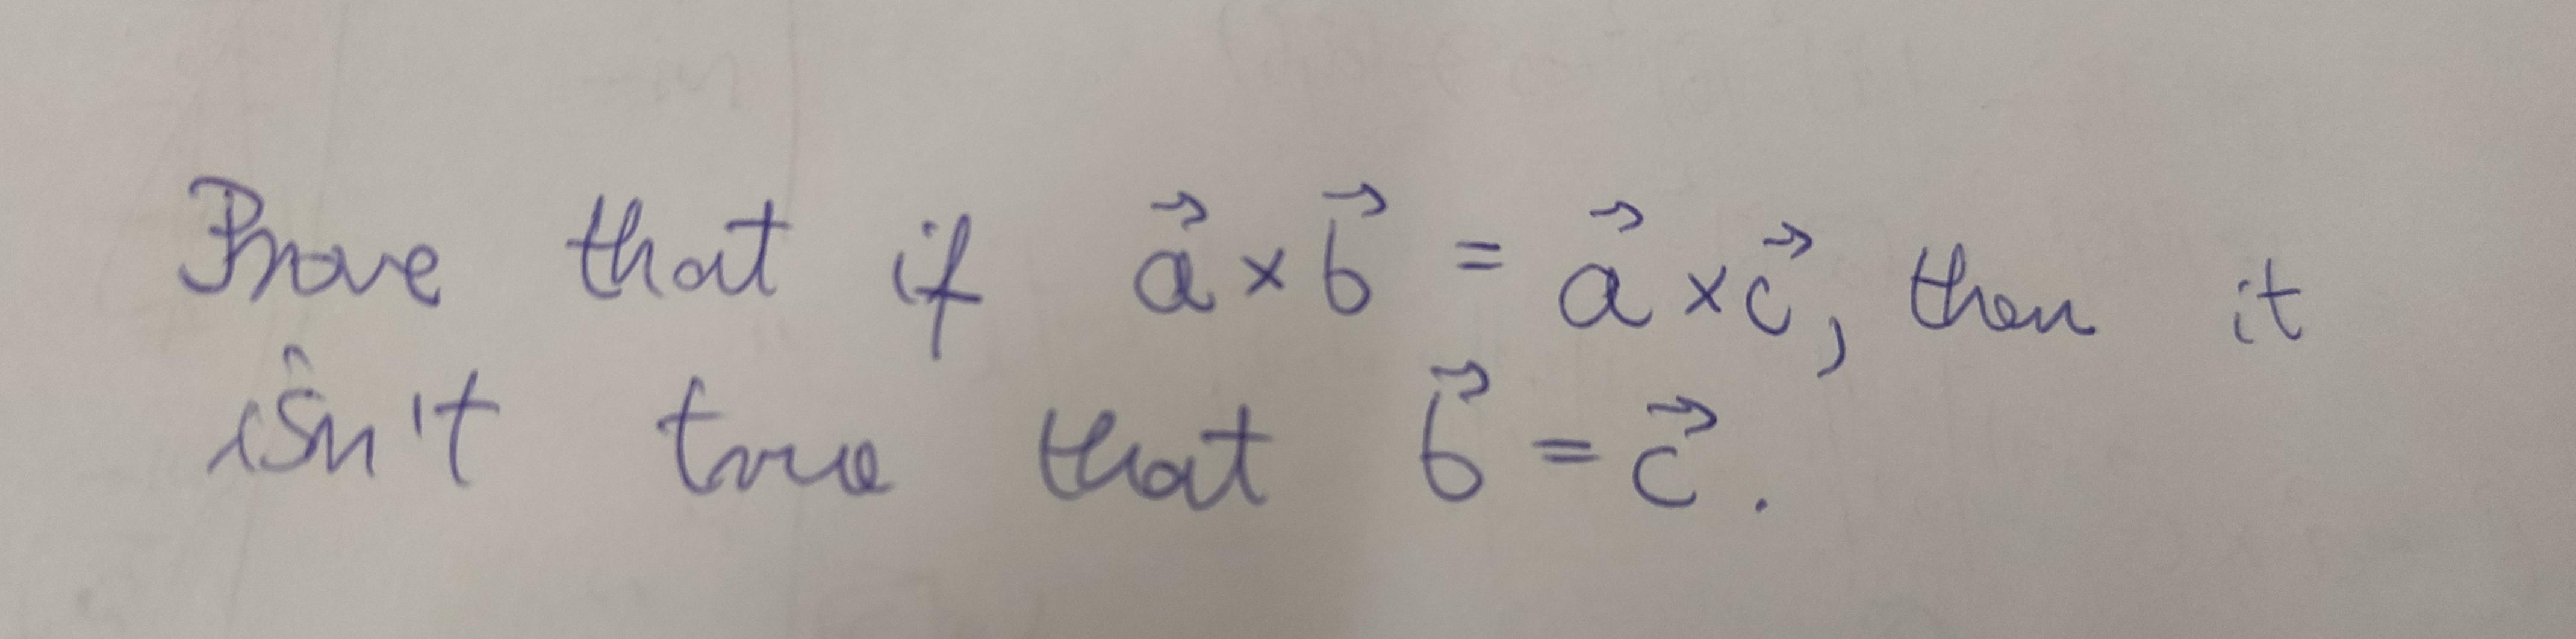 Prove that if $\vec{a} \times \vec{b} = \vec{a} \times \vec{c}$, then it
isn't true that $\vec{b} = \vec{c}$.